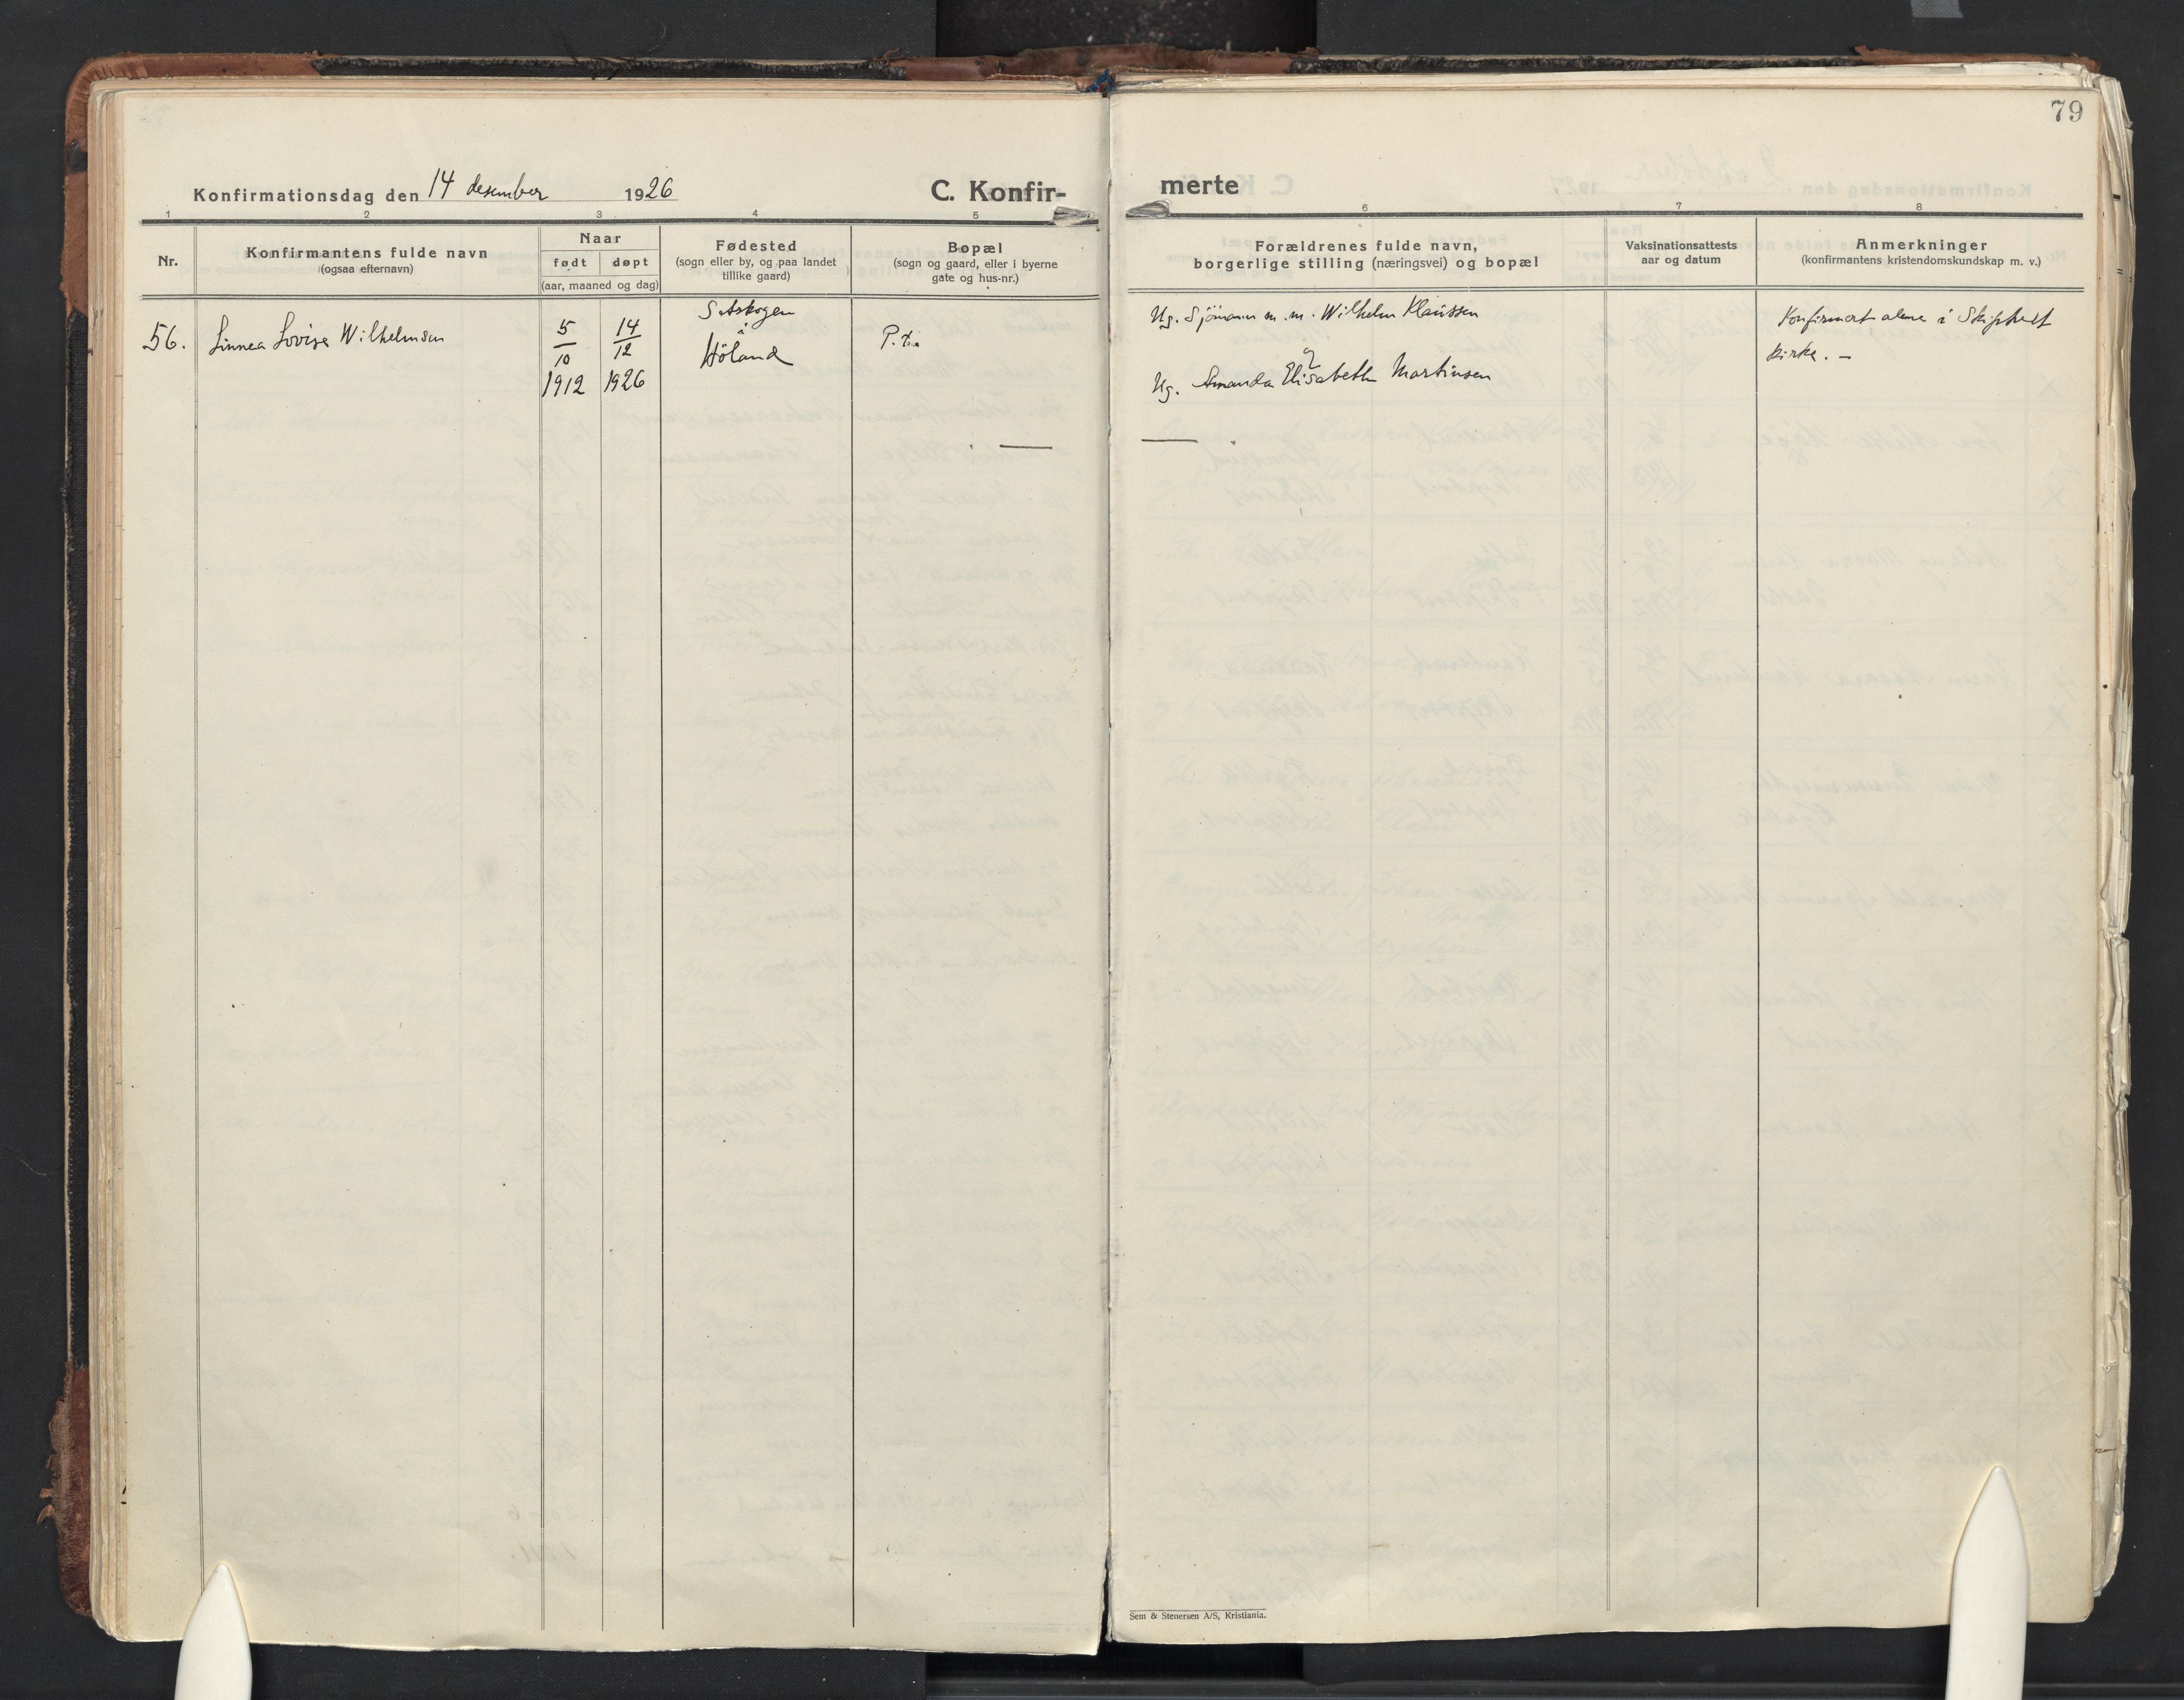 79
Konfirmationsdag den 14 desember 1926
C. Konfir-
merte
1 2 3 4 5 6 7 8
Nr.
Konfirmantens fulde navn
(ogsaa efternavn)
Naar
født døpt
(aar, maaned og dag)
Fødested
(sogn eller by, og paa landet
tillike gaard)
Bopæl
(sogn og gaard, eller i byerne
gate og hus-nr.)
Forældrenes fulde navn,
borgerlige stilling (næringsvei) og bopæl
Vaksinationsattests
aar og datum
Anmerkninger
(konfirmantens kristendomskundskap m. v.)
56. Linnea Lovise Wilhelmsen
5/10 1912
14/12 1926
Setskogen
i
Höland
P. t.
Ug. Sjömann m. m. Wilhelm Klaussen
og
Ug. Amanda Elisabeth Martinsen
Konfirmert alene i Skiptvet
kirke. —
Sem & Stenersen A/S, Kristiania.